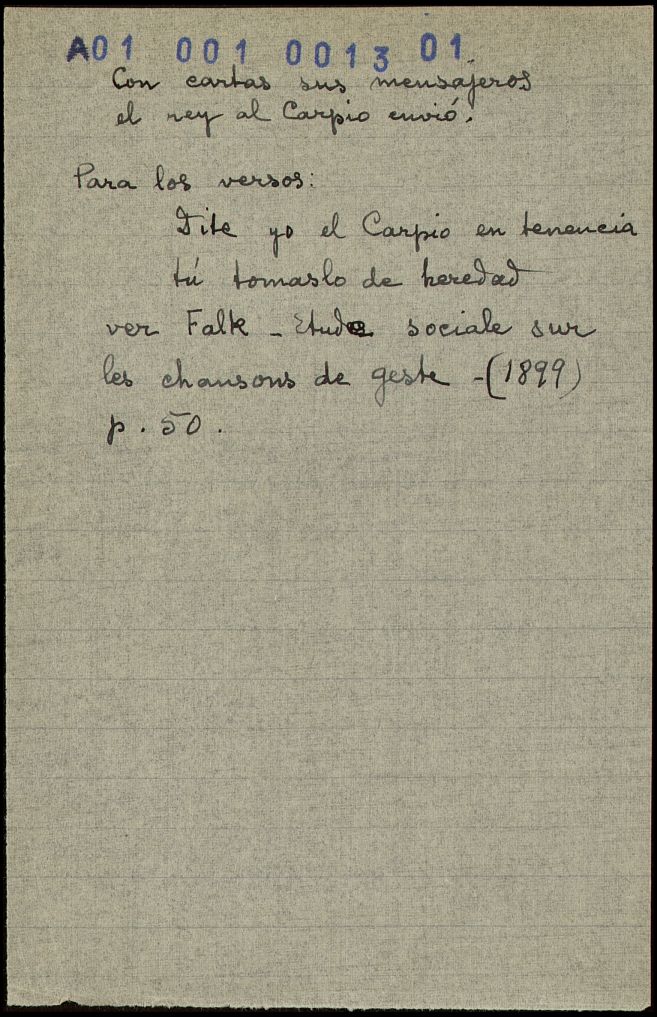 A01 001 0013 01
Con cartas sus mensajeros
el rey al Carpio envió.
Para los versos:
Dite yo el Carpio en tenencia
tú tomaslo de heredad
ver Falk - Etude sociale sur
les chansons de geste - (1899)
p. 50.